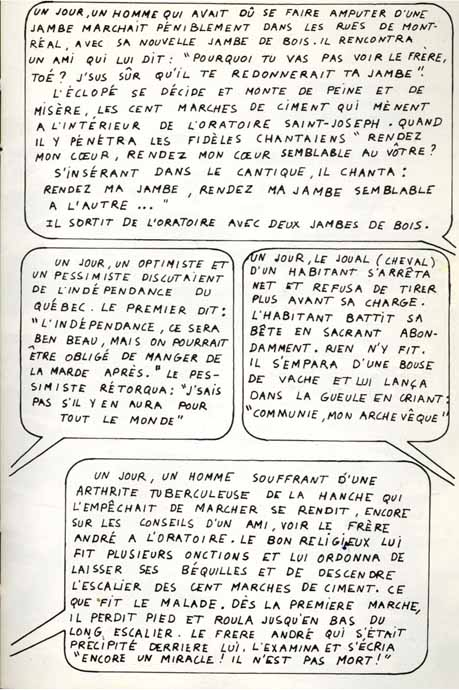 UN JOUR, UN HOMME QUI AVAIT DÛ SE FAIRE AMPUTER D'UNE
JAMBE MARCHAIT PÉNIBLEMENT DANS LES RUES DE MONT-
RÉAL, AVEC SA NOUVELLE JAMBE DE BOIS. IL RENCONTRA
UN AMI QUI LUI DIT: "POURQUOI TU VAS PAS VOIR LE FRÈRE,
TOÉ? J'SUS SÛR QU'IL TE REDONNERAIT TA JAMBE".
L'ÉCLOPÉ SE DÉCIDE ET MONTE DE PEINE ET DE
MISÈRE, LES CENT MARCHES DE CIMENT QUI MÈNENT
A L'INTÉRIEUR DE L'ORATOIRE SAINT-JOSEPH. QUAND
IL Y PÉNÈTRA LES FIDÈLES CHANTAIENS "RENDEZ
MON CŒUR, RENDEZ MON CŒUR SEMBLABLE AU VÔTRE?
S'INSÉRANT DANS LE CANTIQUE, IL CHANTA:
RENDEZ MA JAMBE, RENDEZ MA JAMBE SEMBLABLE
A L'AUTRE ..."
IL SORTIT DE L'ORATOIRE AVEC DEUX JAMBES DE BOIS.
UN JOUR, UN OPTIMISTE ET
UN PESSIMISTE DISCUTAIENT
DE L'INDÉPENDANCE DU
QUÉBEC. LE PREMIER DIT:
"L'INDÉPENDANCE, CE SERA
BEN BEAU, MAIS ON POURRAIT
ÊTRE OBLIGÉ DE MANGER DE
LA MARDE APRÈS." LE PES-
SIMISTE RÉTORQUA: "J'SAIS
PAS S'IL Y EN AURA POUR
TOUT LE MONDE"
UN JOUR, LE JOUAL (CHEVAL)
D'UN HABITANT S'ARRÊTA
NET ET REFUSA DE TIRER
PLUS AVANT SA CHARGE.
L'HABITANT BATTIT SA
BÊTE EN SACRANT ABON-
DAMMENT. RIEN N'Y FIT.
IL S'EMPARA D'UNE BOUSE
DE VACHE ET LUI LANÇA
DANS LA GUEULE EN CRIANT:
"COMMUNIE, MON ARCHEVÊQUE"
UN JOUR, UN HOMME SOUFFRANT D'UNE
ARTHRITE TUBERCULEUSE DE LA HANCHE QUI
L'EMPÊCHAIT DE MARCHER SE RENDIT, ENCORE
SUR LES CONSEILS D'UN AMI, VOIR LE FRÈRE
ANDRÉ A L'ORATOIRE. LE BON RELIGIEUX LUI
FIT PLUSIEURS ONCTIONS ET LUI ORDONNA DE
LAISSER SES BÉQUILLES ET DE DESCENDRE
L'ESCALIER DES CENT MARCHES DE CIMENT. CE
QUE FIT LE MALADE. DÈS LA PREMIÈRE MARCHE,
IL PERDIT PIED ET ROULA JUSQU'EN BAS DU
LONG ESCALIER. LE FRERE ANDRÉ QUI S'ÉTAIT
PRÉCIPITÉ DERRIÈRE LUI, L'EXAMINA ET S'ÉCRIA
"ENCORE UN MIRACLE! IL N'EST PAS MORT!"